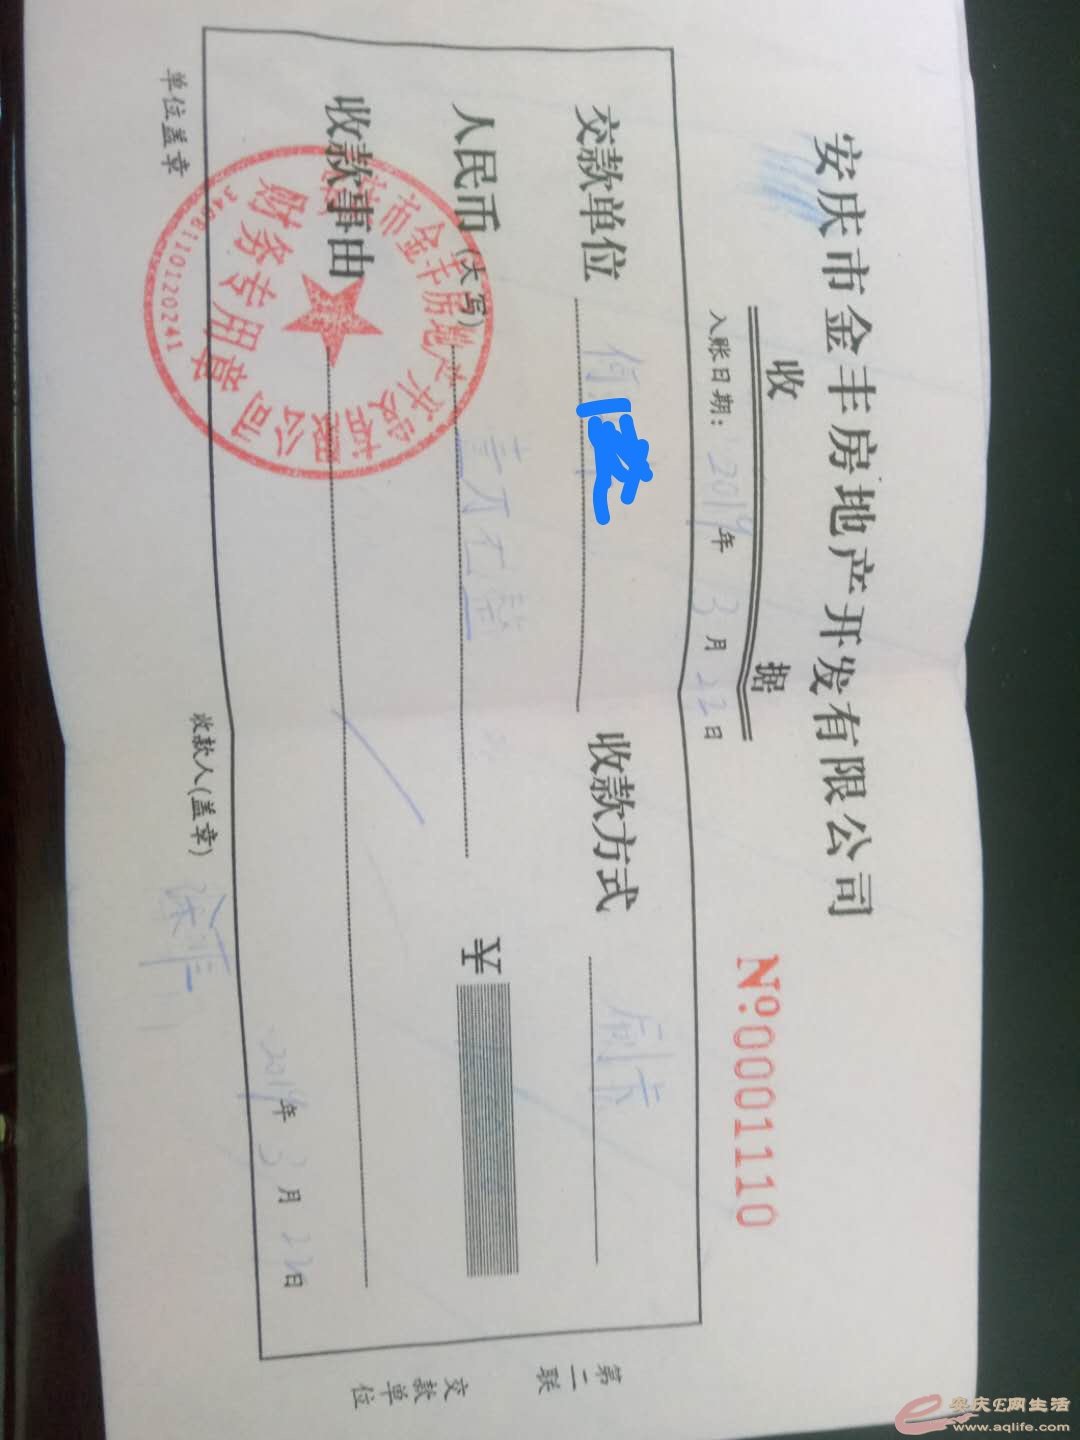 安庆市金丰房地产开发有限公司
收 据
№:0001110
入账日期: 2019年 3月 22日
交款单位 何 收款方式 刷卡
人民币(大写) 壹万 ¥
收款事由
市金丰房地产开发有限公司
财务专用章
单位盖章 收款人(盖章) 2019年 3月 22日
第二联 交款单位
安庆E网生活
www.aqlife.com